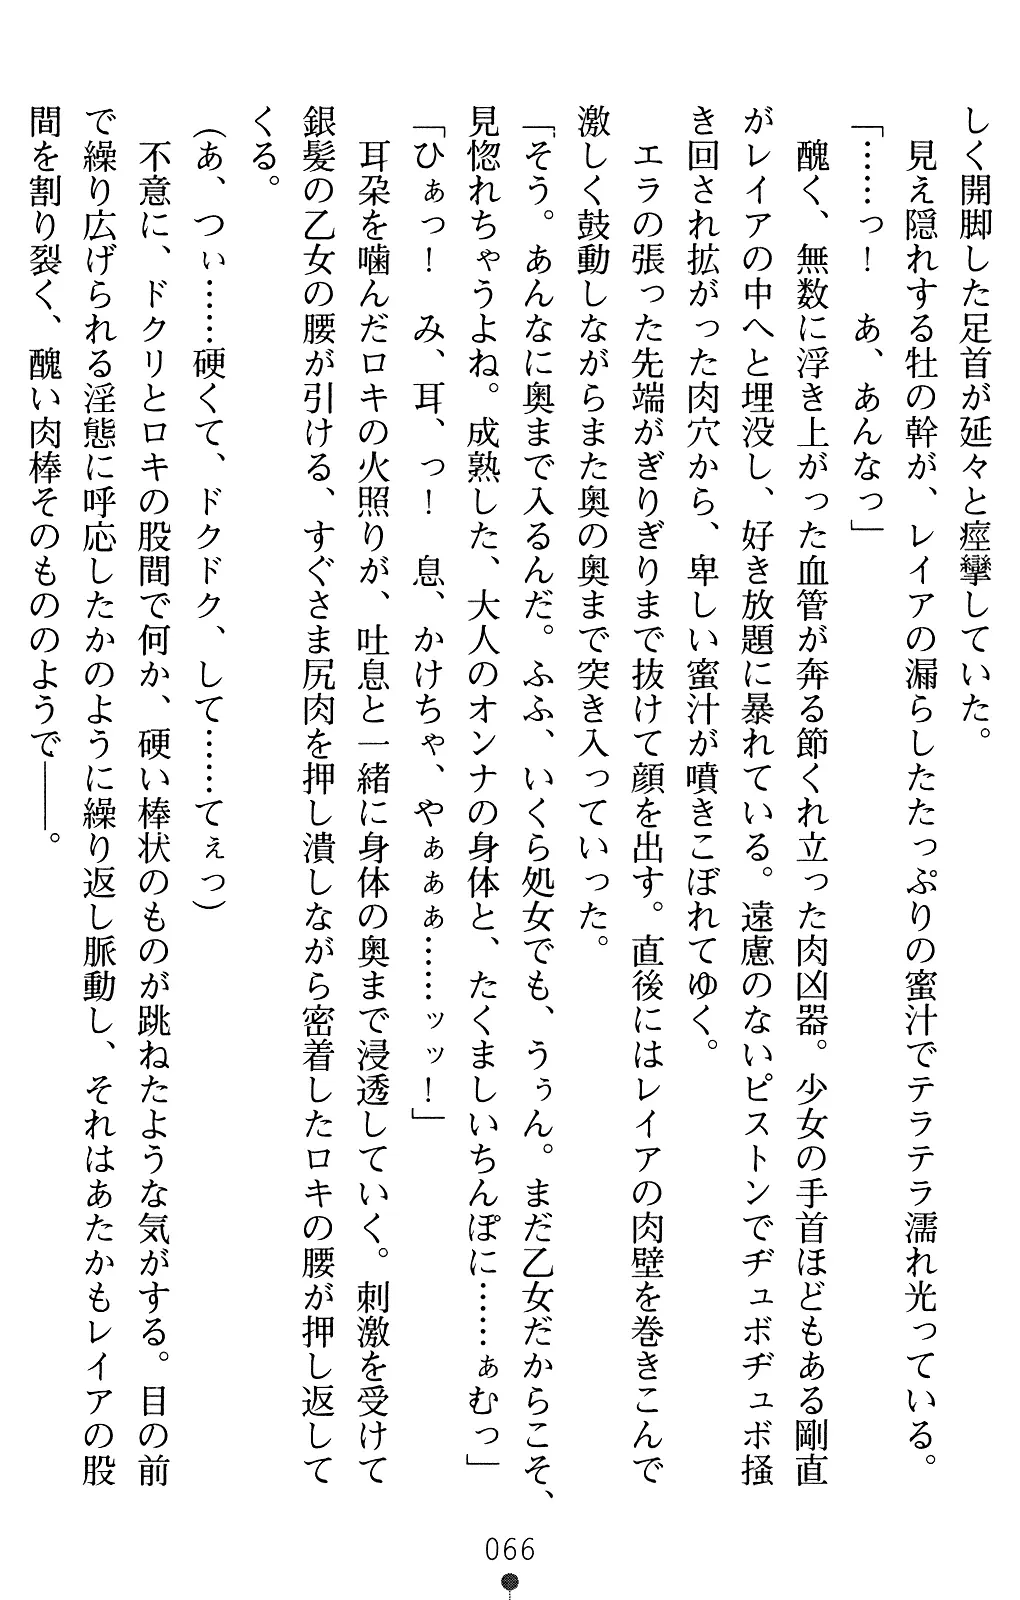 しく開脚した足首が延々と痙攣していた。
見え隠れする牡の幹が、レイアの漏らしたたっぷりの蜜汁でテラテラ濡れ光っている。
「……っ！　あ、あんなっ」
醜く、無数に浮き上がった血管が奔る節くれ立った肉凶器。少女の手首ほどもある剛直
がレイアの中へと埋没し、好き放題に暴れている。遠慮のないピストンでヂュボヂュボ掻
き回され拡がった肉穴から、卑しい蜜汁が噴きこぼれてゆく。
エラの張った先端がぎりぎりまで抜けて顔を出す。直後にはレイアの肉壁を巻きこんで
激しく鼓動しながらまた奥の奥まで突き入っていった。
「そう。あんなに奥まで入るんだ。ふふ、いくら処女でも、うぅん。まだ乙女だからこそ、
見惚れちゃうよね。成熟した、大人のオンナの身体と、たくましいちんぽに……ぁむっ」
「ひぁっ！　み、耳、っ！　息、かけちゃ、やぁぁぁ……ッッ！」
耳朶を噛んだロキの火照りが、吐息と一緒に身体の奥まで浸透していく。刺激を受けて
銀髪の乙女の腰が引ける、すぐさま尻肉を押し潰しながら密着したロキの腰が押し返して
くる。
（あ、つぃ……硬くて、ドクドク、して……てぇっ）
不意に、ドクリとロキの股間で何か、硬い棒状のものが跳ねたような気がする。目の前
で繰り広げられる淫態に呼応したかのように繰り返し脈動し、それはあたかもレイアの股
間を割り裂く、醜い肉棒そのもののようで――。
066